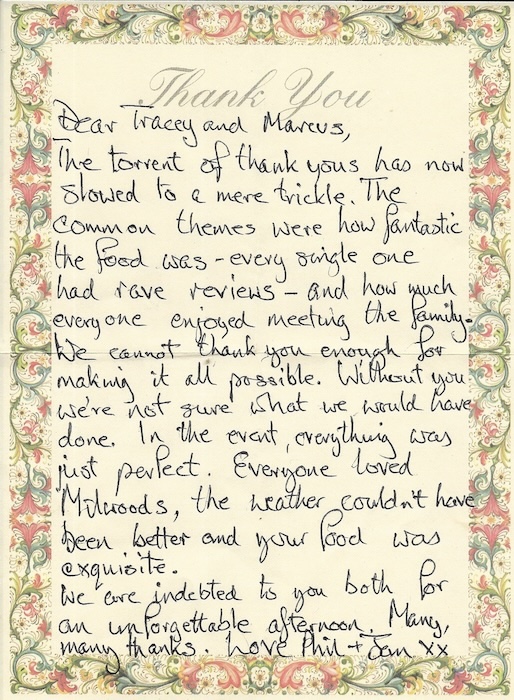 Thank You
Dear Tracey and Marcus,
The torrent of thank yous has now
slowed to a mere trickle. The
common themes were how fantastic
the food was - every single one
had rave reviews - and how much
everyone enjoyed meeting the family.
We cannot thank you enough for
making it all possible. Without you
we're not sure what we would have
done. In the event, everything was
just perfect. Everyone loved
Milwoods, the weather couldn't have
been better and your food was
exquisite.
We are indebted to you both for
an unforgettable afternoon. Many,
many thanks. Love Phil + Jan xx